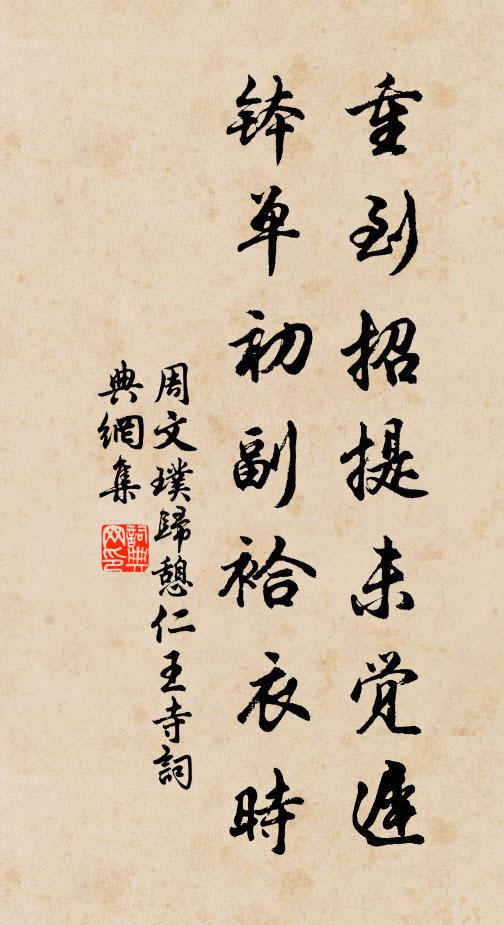 重到招提未觉遲
钵单初副袷衣時
周文璞歸憩仁王寺詞
典網集
詞典
网印